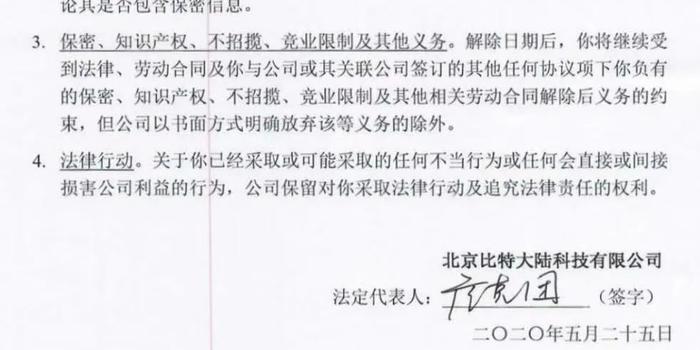 论其是否包含保密信息。
3. 保密、知识产权、不招揽、竞业限制及其他义务。解除日期后，你将继续受
到法律、劳动合同及你与公司或其关联公司签订的其他任何协议项下你负有
的保密、知识产权、不招揽、竞业限制及其他相关劳动合同解除后义务的约
束，但公司以书面方式明确放弃该等义务的除外。
4. 法律行动。关于你已经采取或可能采取的任何不当行为或任何会直接或间接
损害公司利益的行为，公司保留对你采取法律行动及追究法律责任的权利。
北京比特大陆科技有限公司
法定代表人：詹克团（签字）
二〇二〇年五月二十五日